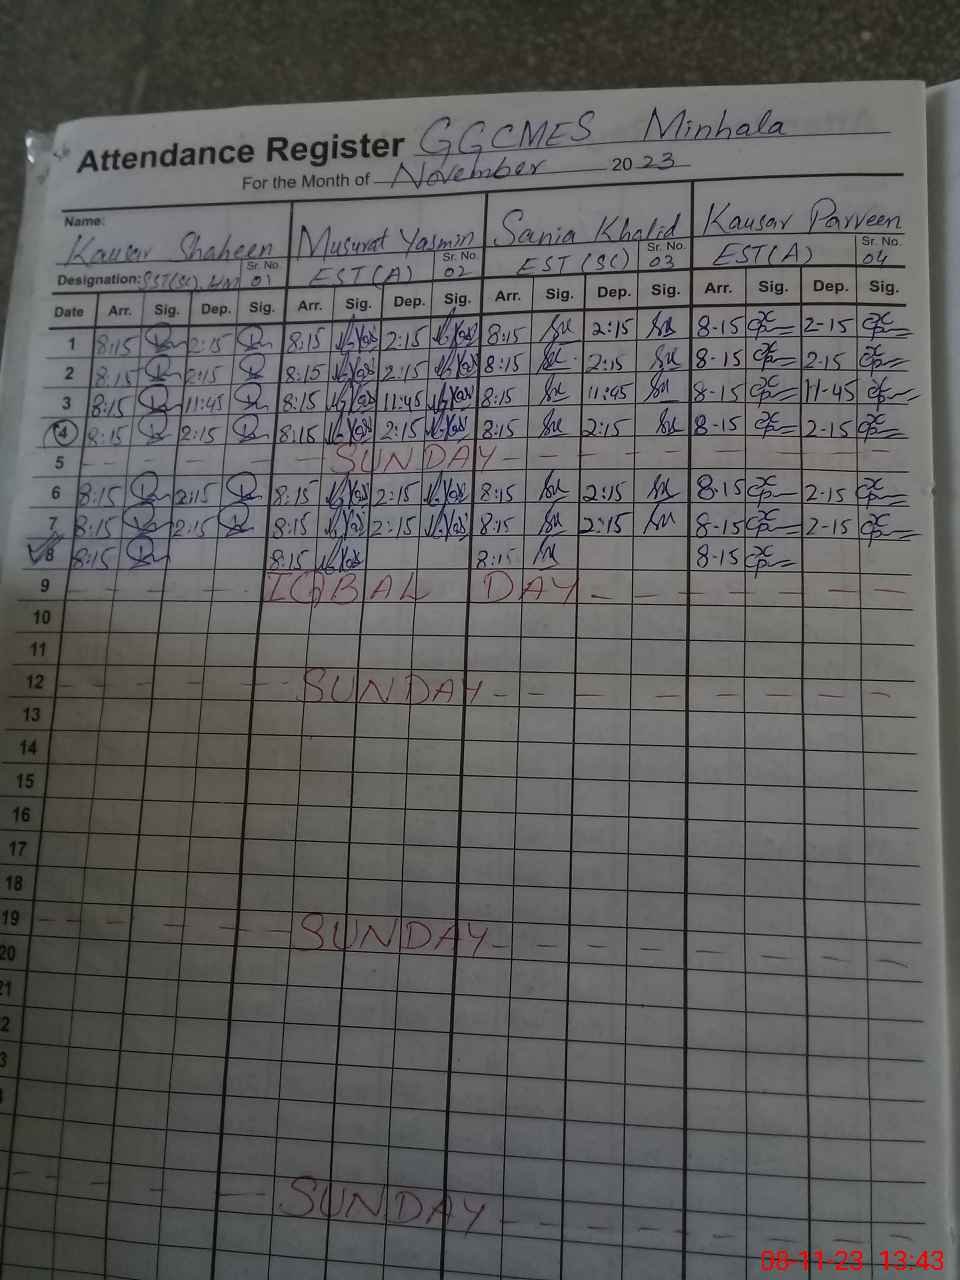 Attendance Register GGCMES Minhala
For the Month of November 2023
Name: Kausar Shaheen Musurat Yasmin Sania Khalid Kausar Parveen
Designation: SST(Sc), HM Sr. No. 01 EST(A) Sr. No. 02 EST(SC) Sr. No. 03 EST(A) Sr. No. 04
Date Arr. Sig. Dep. Sig. Arr. Sig. Dep. Sig. Arr. Sig. Dep. Sig. Arr. Sig. Dep. Sig.
1 8:15 2:15 8:15 2:15 8:15 2:15 8-15 2-15
2 8:15 2:15 8:15 2:15 8:15 2:15 8-15 2-15
3 8:15 11:45 8:15 11:45 8:15 11:45 8-15 11-45
4 8:15 2:15 8:15 2:15 8:15 2:15 8-15 2-15
5 SUNDAY
6 8:15 2:15 8:15 2:15 8:15 2:15 8-15 2-15
7 8:15 2:15 8:15 2:15 8:15 2:15 8-15 2-15
8 8:15 8:15 8:15 8-15
9 IQBAL DAY
10
11
12 SUNDAY
13
14
15
16
17
18
19 SUNDAY
20
21
2
3
SUNDAY
08-11-23 13:43